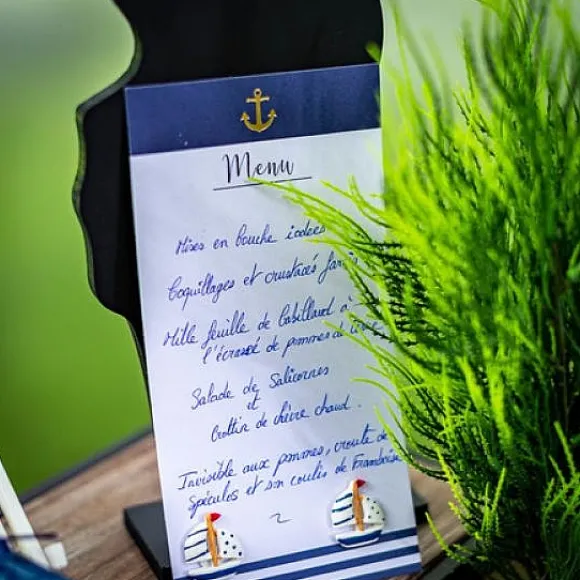 Menu
Mises en bouche iodées
Coquillages et crustacés farcis
Mille feuille de Cabillaud à
l'écrasé de pommes de terre
Salade de Salicornes
et
Crottin de chèvre chaud.
Invisible aux pommes, croute de
Spéculos et son coulis de Framboise
~